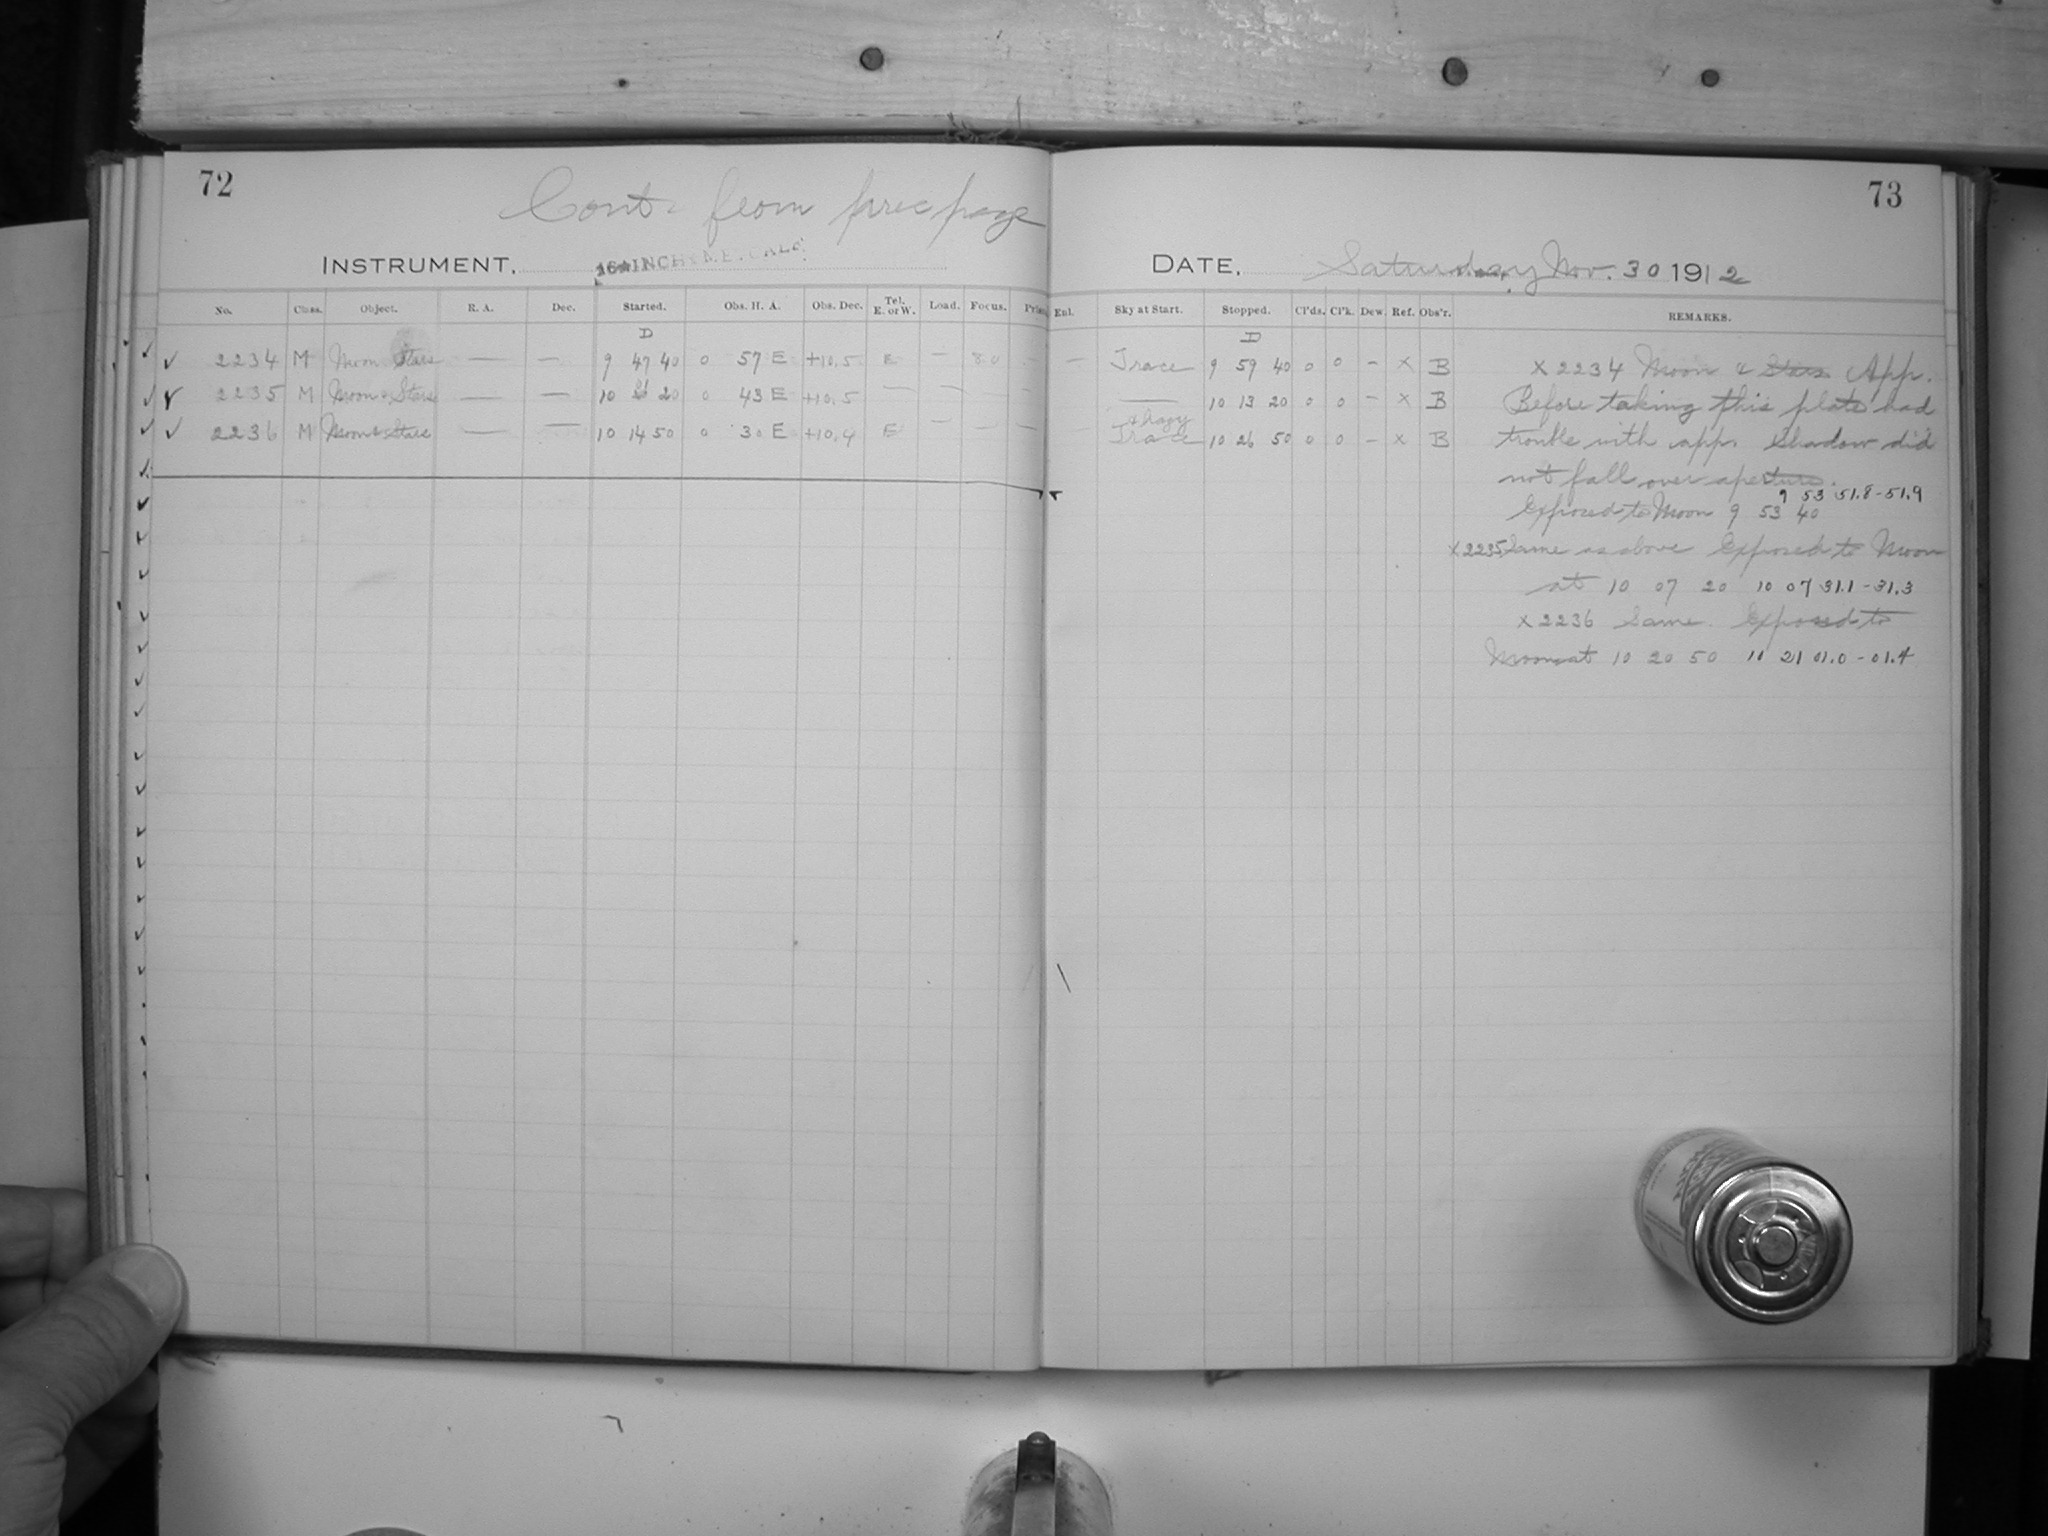 72
Cont. from prec page
INSTRUMENT, 16 INCH METCALF
No. Class. Object. R. A. Dec. Started. Obs. H. A. Obs. Dec. Tel. E. or W. Load. Focus. Prism
D
✓ 2234 M Moon Stars — — 9 47 40 0 57 E +10.5 E — 8.0
✓ 2235 M Moon & Stars — — 10 20 0 43 E +10.5 — —
✓ 2236 M Moon & Stars — — 10 14 50 0 30 E +10.4 E — — —
73
DATE, Saturday Nov. 30 1912
Enl. Sky at Start. Stopped. Cl'ds. Cl'k. Dew. Ref. Obs'r. REMARKS.
D
— Trace 9 59 40 0 0 – X B
— 10 13 20 0 0 – X B
& hazy
Trace 10 26 50 0 0 – X B
X 2234 Moon & Stars App.
Before taking this plate had
trouble with app. Shadow did
not fall over aperture.
9 53 51.8 - 51.9
Exposed to Moon 9 53 40
X 2235 Same as above Exposed to Moon
at 10 07 20 10 07 31.1 - 31.3
X 2236 Same. Exposed to
Moon at 10 20 50 10 21 01.0 - 01.4